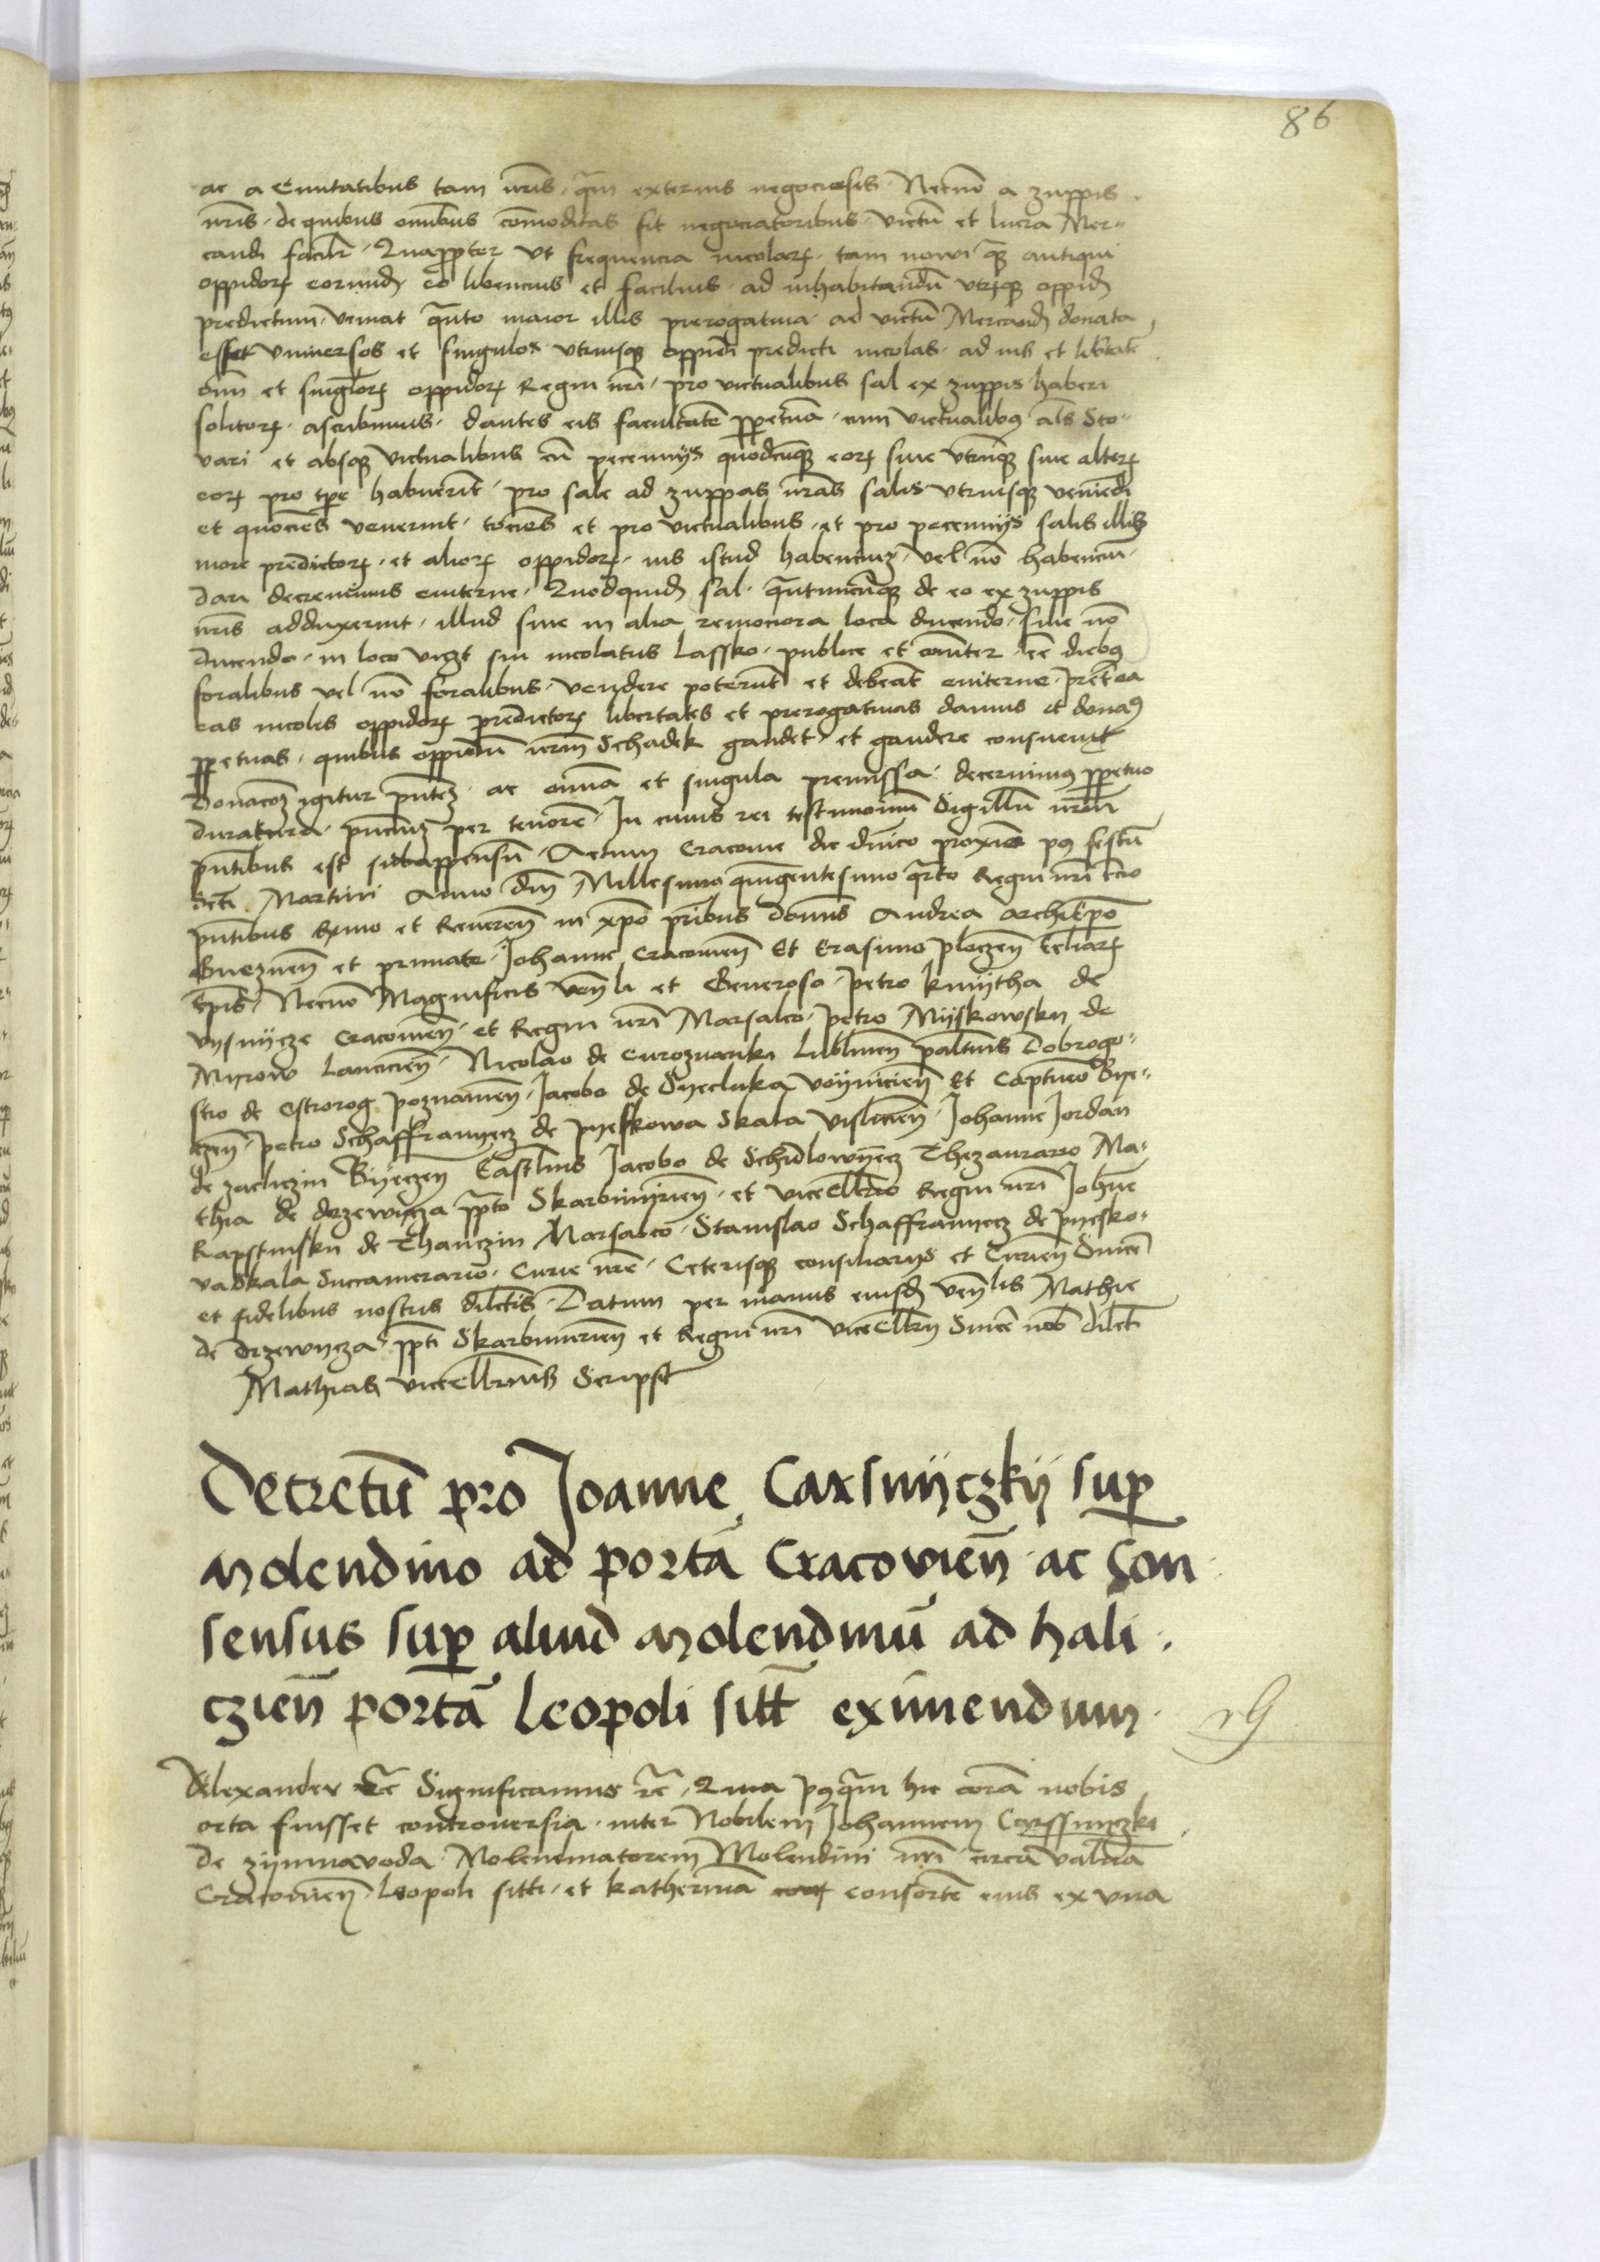 86
ac a Civitatibus tam nr̄is · q̄m externis negociosis · Necnō a zuppis
nr̄is · de quibus om̄ibus cōmoditas sit negociatoribus · victū et lucra Mer-
candi facilr̄ · Quapropter ut frequencia incolarꝝ · tam nowi q̄ꝫ antiqui
oppidorꝝ eorundꝫ eo libencius et facilius · ad inhabitandū utrūqꝫ oppidꝫ
predictum · veniat q̄nto maior illis prerogativa · ad victū Mercandꝫ donata
esset Universos et singulos utriusqꝫ oppidi predicti incolas · ad ius et libertatē
om̄i et singlorꝝ oppidorꝝ Regni nr̄i · pro victualibus sal ex zuppis haberi
solitorꝝ · ascribimus · dantes eis facultatē ꝑpetuā · cum victualibꝰ al̄s Sto-
vari et absqꝫ victualibus cū pecunijs quodcūqꝫ eorꝝ sive utrūqꝫ sive alterꝝ
eorꝝ pro tp̄e habuerīt · pro sale ad zuppas nr̄as salis utriusqꝫ veniēdi
et quociēs venerint · tociēs et pro victualibus · et pro pecunijs salis illis
more predictorꝝ · et aliorꝝ oppidorꝝ · ius istud habenciuꝫ · vel nō habenciū ·
dari decrevimus eviterne · Quodquidꝫ sal · q̄ntumcūqꝫ de eo ex zuppis
nr̄is adduxerint · illud sive in alia remociora loca ducendo · sive nō
ducendo · in loco vicꝫt sui incolatus Lassko · publice et cōmuniter · eē diebꝰ
foralibus vel nō foralibus · vendere poterunt et debeāt eviterne · pret̄ea
eas incolis oppidorꝝ predictorꝝ libertates et prerogativas damus et donamꝰ
ꝑpetuas · quibus oppidū nr̄m Schadek gaudet · et gaudere consuevit
Donacōꝫ igitur p̄ntē · ac om̄ia et singula premissa · decernimus ꝑpetuo
duratura · p̄nciū per tenorē · In cuius rei testimoniū Sigillū nr̄m
p̄ntibus est subappensū · Actum Cracovie die dn̄ico proximo pꝰ festū
Scti Martini Anno dn̄i Millesimo quingentesimo q̄rto Regni nr̄i tercio
p̄ntibus Rx̄mo et Reverenꝫ in xp̄o pr̄ibus dominis Andrea archiep̄o
Gnezneñ et primate · Johanne Cracovieñ Et Erasmo ploczeñ Eccliarꝝ
Ep̄is · Necnō Magnificis Venꝫli et Generoso · Petro kmytha de
vysnycze Cracovieñ · et Regni nr̄i Marsalco · Petro Myskowsky de
Myrow Lancicieñ · Nicolao de Curozwanki Lublineñ palatinis Dobrogo-
stio de Ostrorog Poznanieñ · Jacobo de Syecluka voynicieñ Et Capitaneo Bye-
czeñ · Petro Schaffranyecz de pyeskowa Skala vislicieñ · Johanne Jordan
de zacliczin Byeczeñ Castlnis Jacobo de Schidlowyecz Thezaurario Ma-
thia de drzewicza ꝑpto Skarbimirieñ · et viceCllrio Regni nr̄i Johñe
Rapstinsky de Thanczin Marsalco · Stanislao Schaffranyecz de pyesko-
va Skala Succamerario · Curie nr̄e · Ceterisqꝫ consiliarijs et Curieñ Sincē
et fidelibus nostris dilectis · Datum per manus eiusdꝫ venꝫlis Mathie
de drzewycza ꝑpti Skarbimirieñ et Regni nr̄i viceCllrij Sincē nobis dilecti
Mathias viceCllrius Scripsit
Decretū pro Joanne Caxsnyczky suꝑ
molendino ad portā Cracovieñ · ac Con
sensus suꝑ aliud molendinū ad hali ·
czieñ portā Leopoli sitt̄ eximendum ·
Alexander &c̄ Significamus &c̄ · Quia pꝰq̄m hic corā nobis
orta fuisset controversia · inter Nobilem Johannem Caxssnyczki
de zymnavoda · Molendinatorem Molendini nr̄i circa valvā
Cracovieñ Leopoli sitti · et Katherinā consortē eius ex una